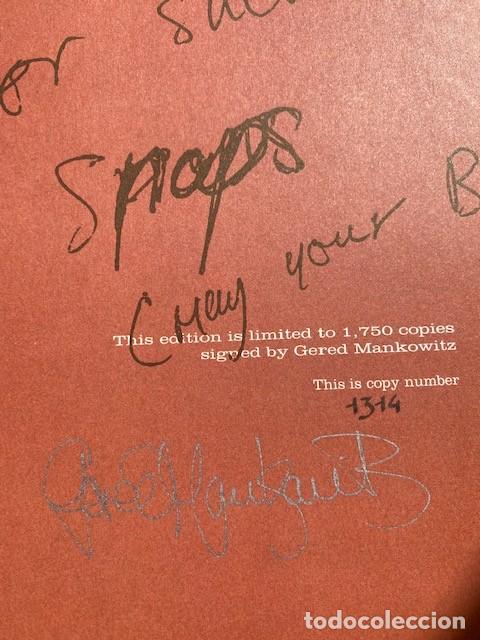 or
Snaps
(May your B
This edition is limited to 1,750 copies
signed by Gered Mankowitz
This is copy number
1314
Gered Mankowitz
todocoleccion